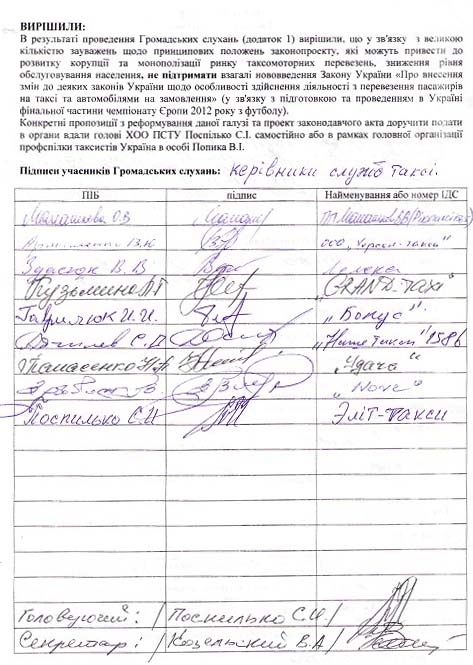 ВИРІШИЛИ:
В результаті проведення Громадських слухань (додаток 1) вирішили, що у зв'язку з великою
кількістю зауважень щодо принципових положень законопроекту, які можуть привести до
розвитку корупції та монополізації ринку таксомоторних перевезень, зниження рівня
обслуговування населення, не підтримати взагалі нововведення Закону України «Про внесення
змін до деяких законів України щодо особливості здійснення діяльності з перевезення пасажирів
на таксі та автомобілями на замовлення» (у зв'язку з підготовкою та проведенням в Україні
фінальної частини чемпіонату Європи 2012 року з футболу).
Конкретні пропозиції з реформування даної галузі та проект законодавчого акта доручити подати
в органи вдали голові ХОО ПСТУ Поспілько С.І. самостійно або в рамках головної організації
профспілки таксистів Україна в особі Попика В.І.
Підписи учасників Громадських слухань: керівники служб таксі.
ПІБ підпис Найменування або номер ІДС
В. В.
"GRAND-TAXI"
Гаврилюк И.И. "Бонус"
1586
Танасенко "Удача"
"Nova"
Поспилько С.И. Эліт-такси
Головуючий: / Поспилько С.И. /
Секретар: / Коцельский В.А /